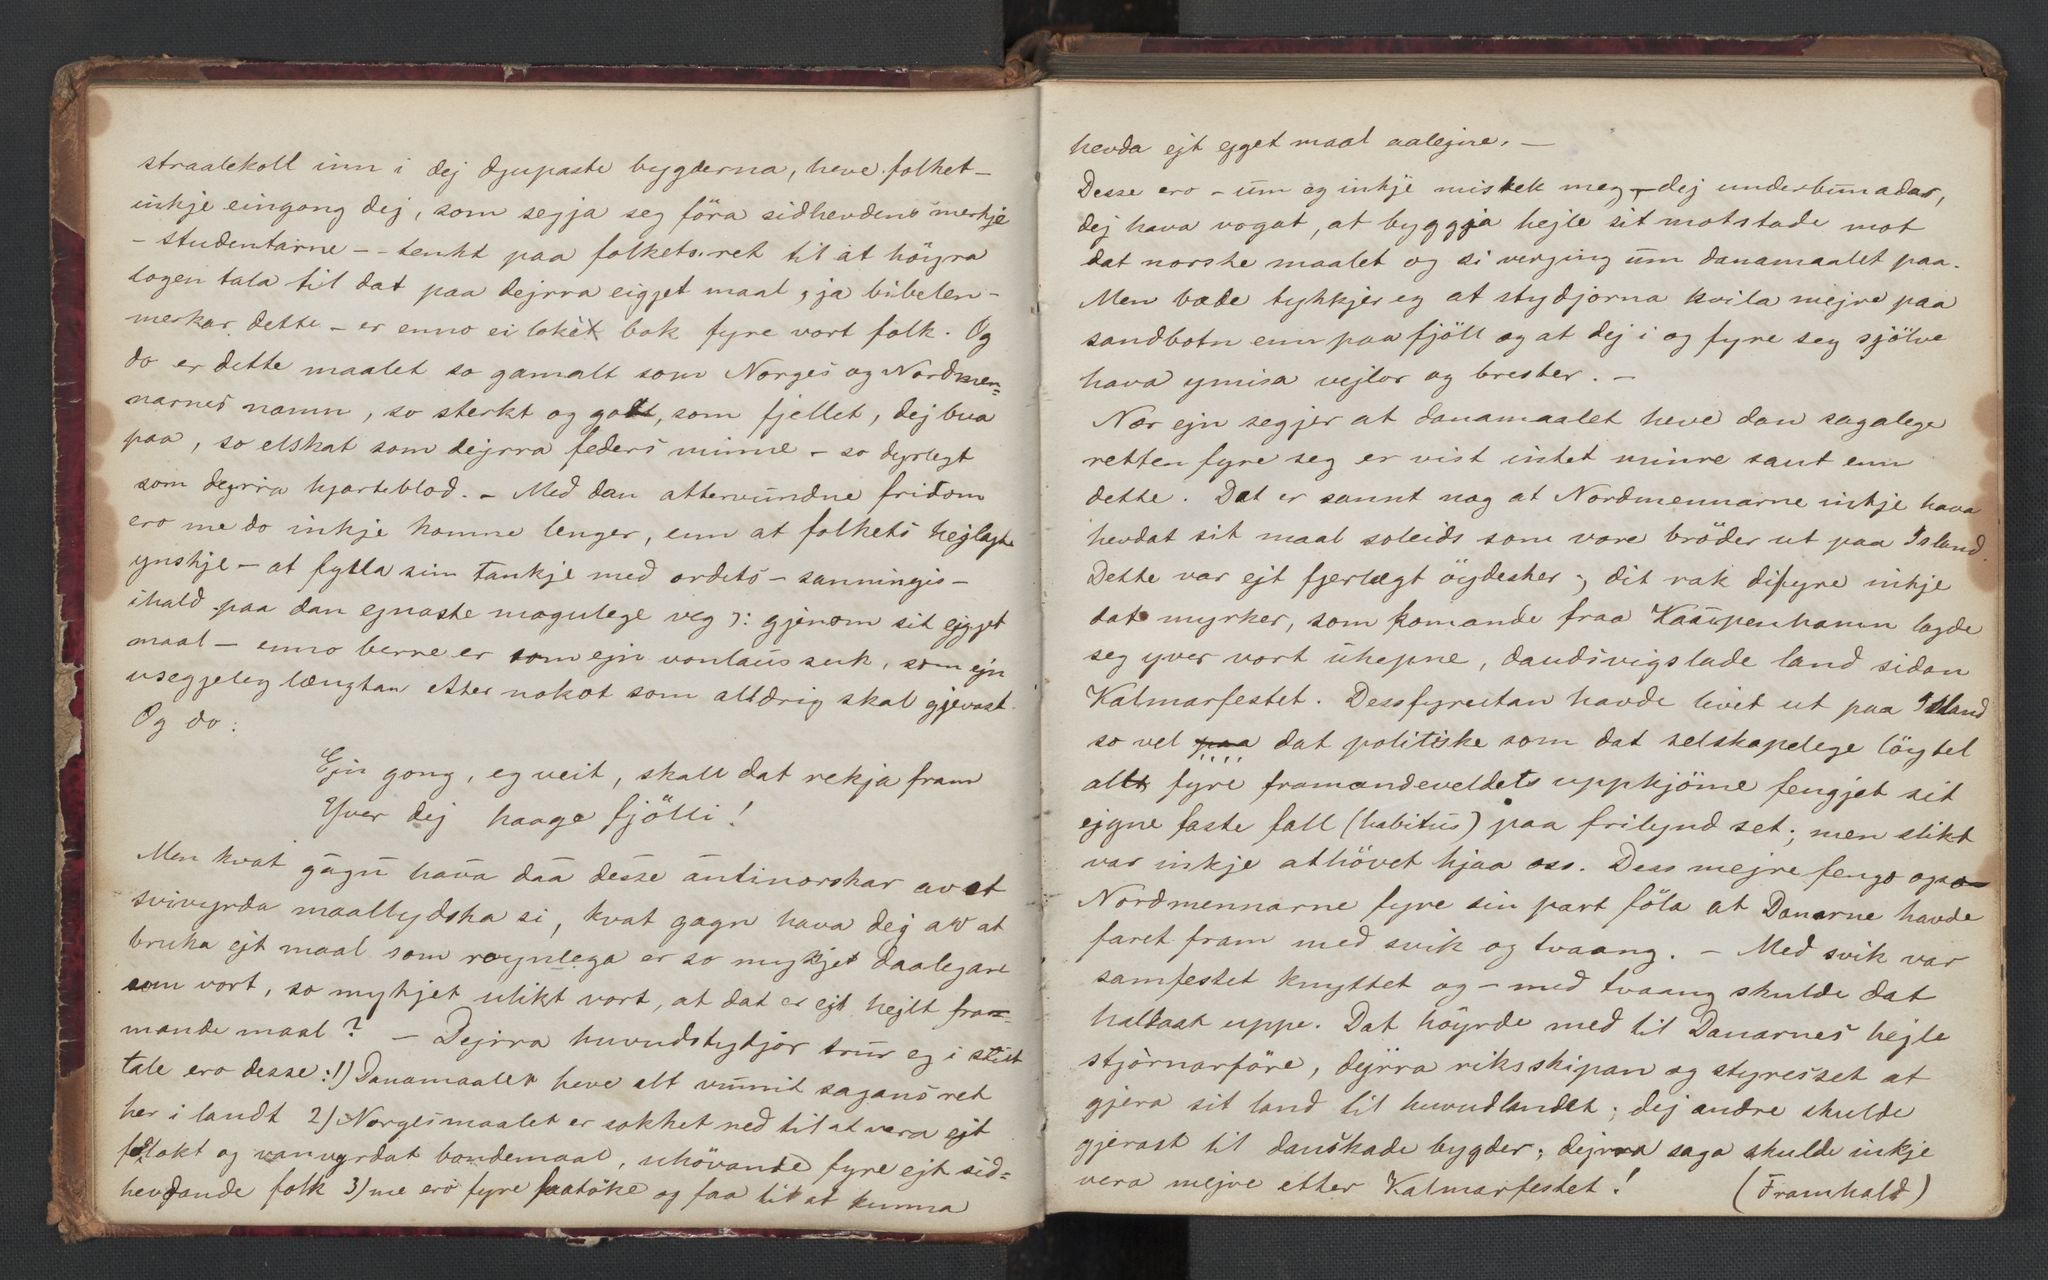 straalekoll inn i dej djupaste bygderna, heve folket –
inkje eingong dej, som segja seg föra sidhevdens merkje
– studentarne – tenkt paa folkets ret til at höyra
logen tala til dat paa dejrra eigjet maal, ja bibelen –
merkar dette – er enno ei loket bok fyre vort folk. Og
do er dette maalet so gamalt som Norges og Nordmen=
narnes namn, so sterkt og godt, som fjellet, dej bua
paa, so elskat som dejrra feders minne – so dyrlegt
som dejrra hjarteblod. – Med dan attervundne fridom
ero me do inkje komne lenger, enn at folkets hejlagte
ynskje – at fylla sin tankje med ordets – sanningis –
ihald paa dan ejnaste mogulege veg ɔ: gjenom sit ejgjet
maal – enno berre er som ejn vonlaus suk, som ejn
usegjeleg længtan etter nokot som alldrig skal gjevast.
Og do:
Ejn gong, eg veit, skall dat rekja fram
Yver dej haage fjölli!
Men kvat gagn hava daa desse antinorskar av at
svivyrda maallydska si, kvat gagn hava dej av at
bruka ejt maal som röynlega er so mykjet daalegare
enn vort, so mykjet ulikt vort, at dat er ejt hejlt fra=
mande maal? – Dejrra huvudstydjor trur eg i stutt
tale ero desse: 1) Danamaalet heve alt vunnit sagans ret
her i landt 2) Norgesmaalet er sokket ned til at vera ejt
fillokt og vanvyrdat bondemaal, uhövande fyre ejt sid=
hevdande folk 3) me ero fyre faatöke og faa til at kunna
hevda ejt ejget maal aalejne. –
Desse ero – um eg inkje mistek meg – dej underbunadar,
dej hava vogat, at byggja hejle sit motstade mot
dat norske maalet og si verging um danamaalet paa.
Men bæde tykkjer eg at stydjorna kvila mejre paa
sandbotn enn paa fjöll og at dej i og fyre seg sjölve
hava ymisa vejlor og brester. –
Nær ejn segjer at danamaalet heve dan sagalege
retten fyre seg er vist intet minre sant enn
dette. Dat er sannt nog at Nordmennarne inkje hava
hevdat sit maal soleids som vore bröder ut paa Island.
Dette var ejt fjerlægt öydesker; dit rak difyre inkje
dat myrker, som komande fraa Kaupenhamn lagde
seg yver vort uhepne, daudsvigslade land sidan
Kalmarfestet. Dessfyreutan havde livet ut paa Island
so vel paa dat politiske som dat selskapelege löytel
allt fyre framandeveldets uppkjöme fengjet sit
ejgne faste fall (habitus) paa frilyndset; men slikt
var inkje athövet hjaa oss. Dess mejre fengo ogso
Nordmennarne fyre sin part föla at Danarne havde
faret fram med svik og tvaang. – Med svik var
samfestet knyttet og – med tvaang skulde dat
haldast uppe. Dat höyrde med til Danarnes hejle
stjórnarföre, dejrra riksskipan og styresset at
gjera sit land til huvudlandet; dej andre skulde
gjerast til danskade bygder; dejrra saga skulde inkje
vera mejre etter Kalmarfestet! (Framhald)